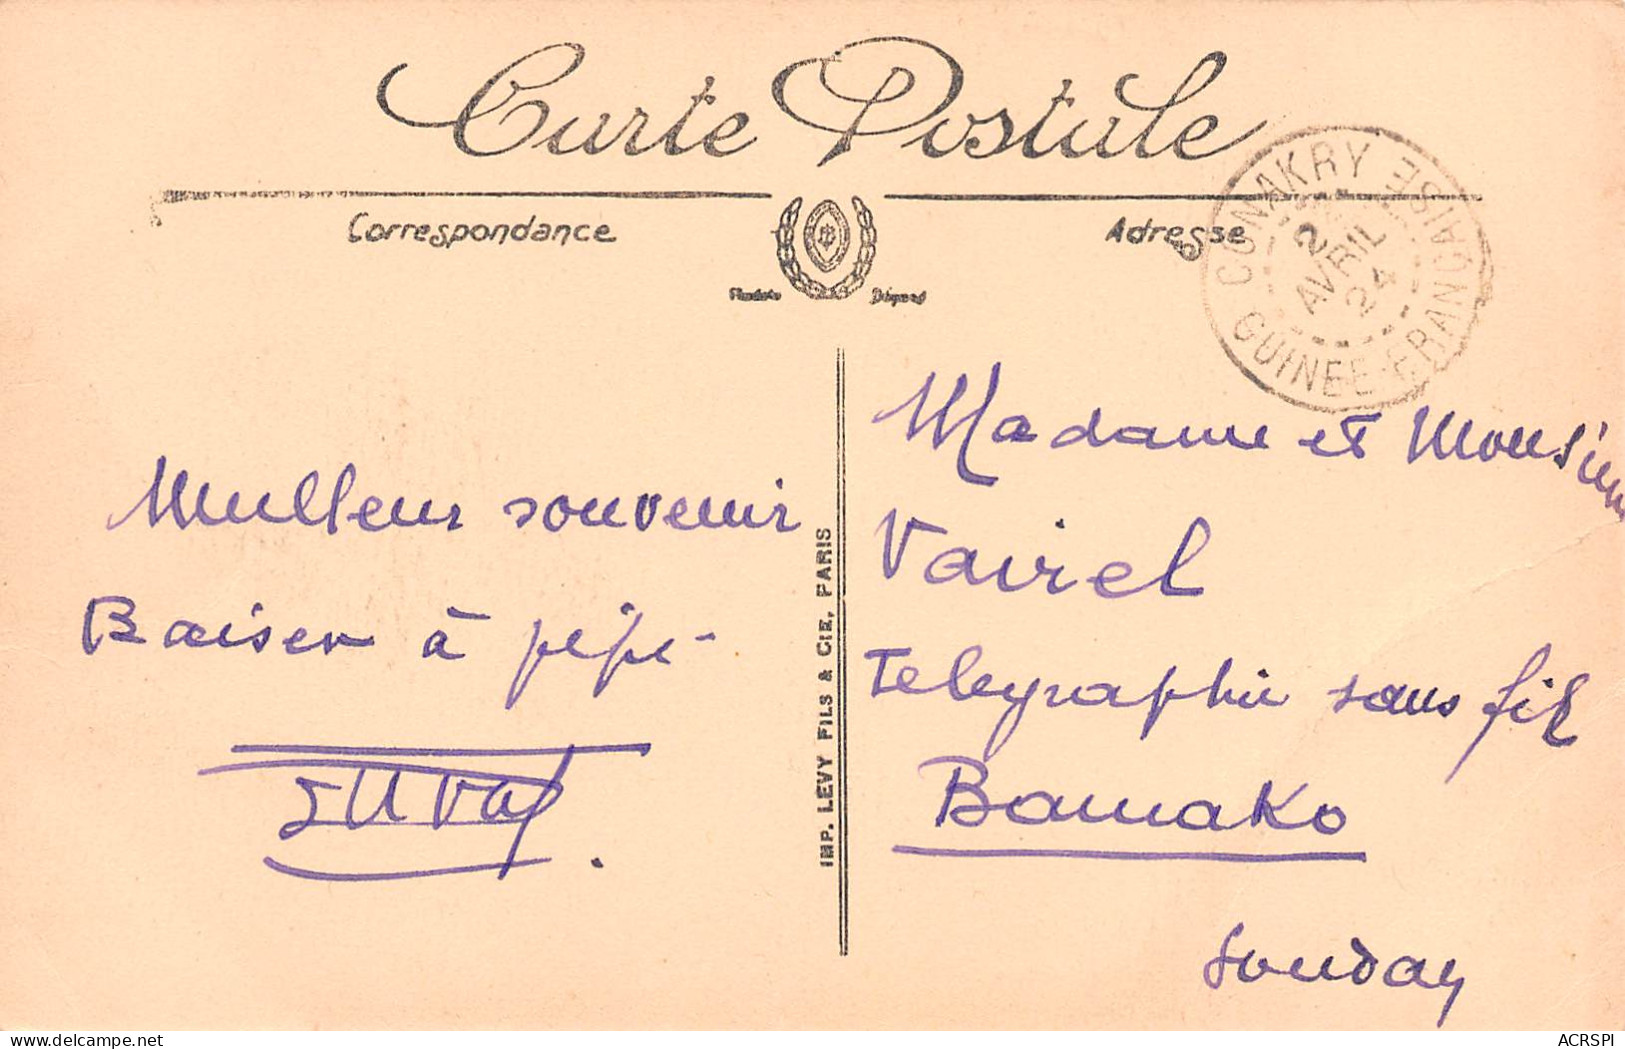 Carte Postale
Correspondance
Adresse
Modèle Déposé
CONAKRY
GUINÉE FRANÇAISE
2
AVRIL
24
Meilleur souvenir
Baiser à pépé
IMP. LEVY FILS & CIE, PARIS
Madame et Monsieur
Vairel
Telegraphie sans fil
Bamako
Soudan
delcampe.net
ACRSPI